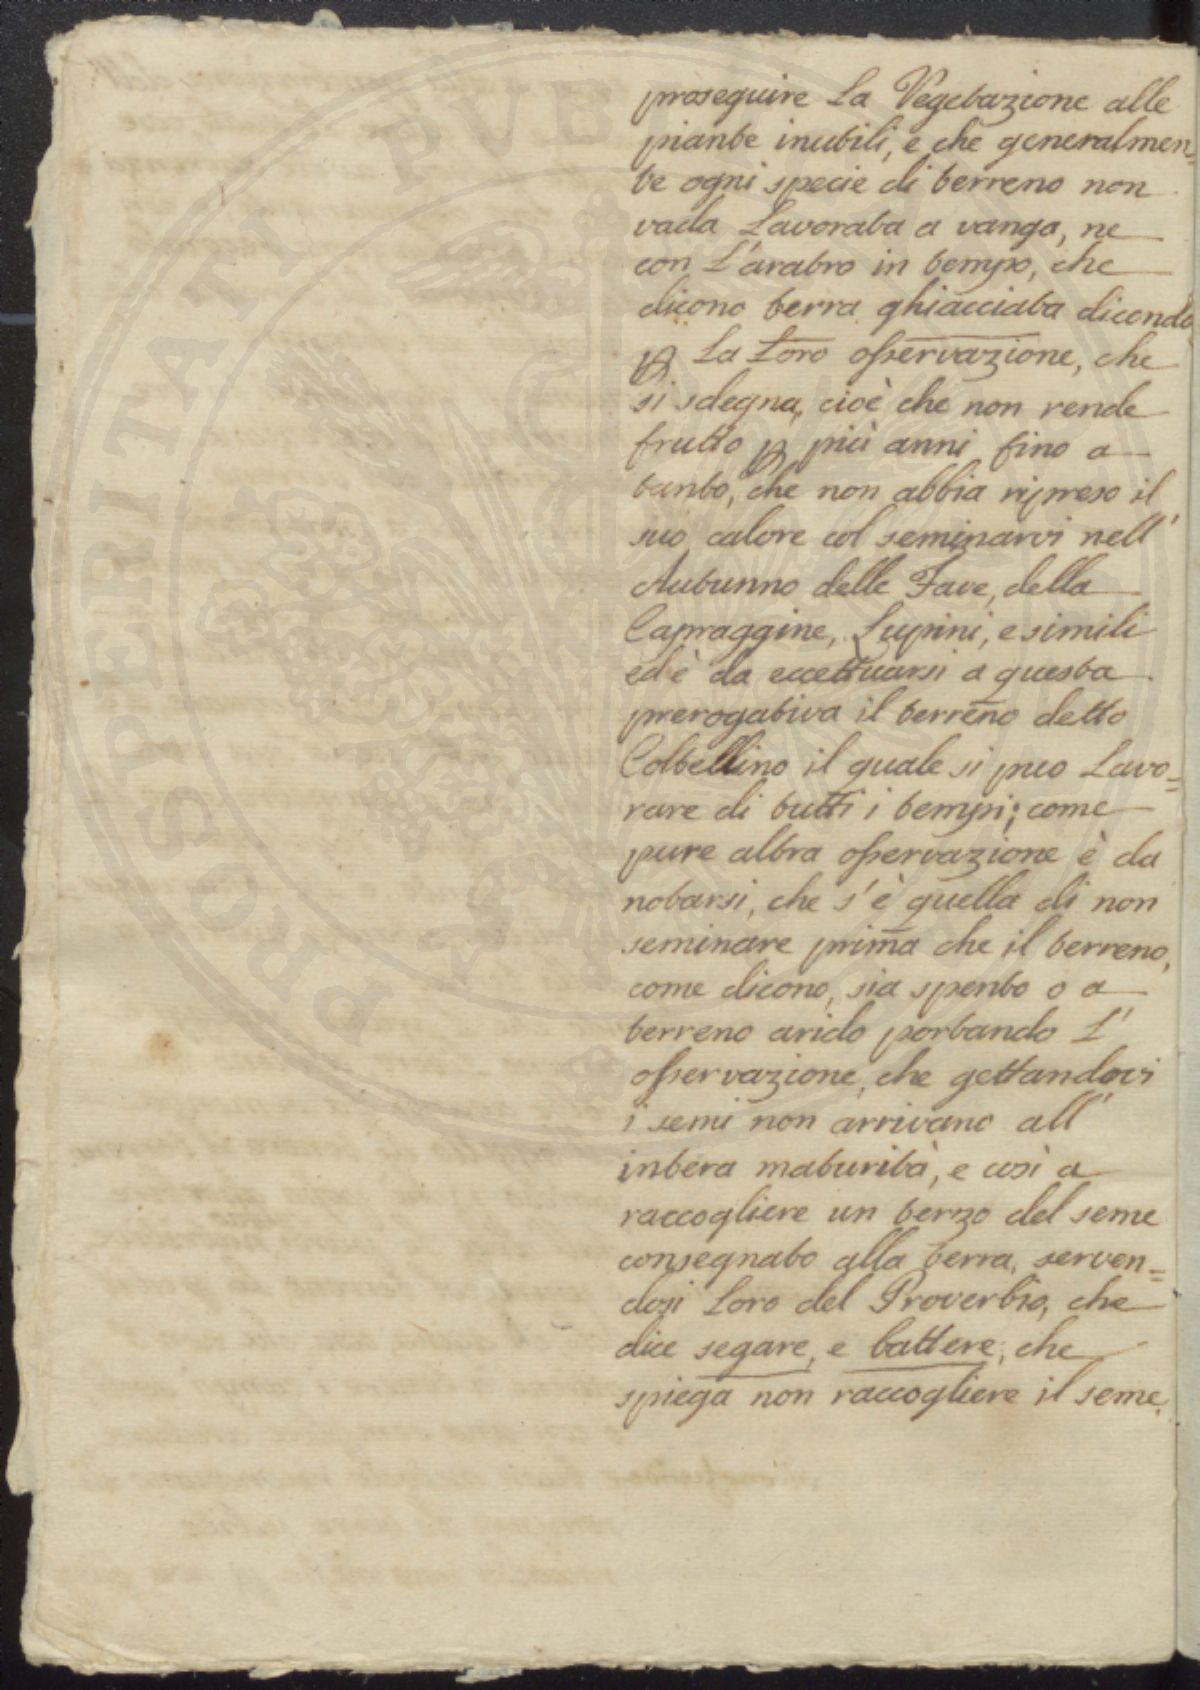 proseguire La Vegetazione alle
piante inutili, e che generalmen=
te ogni specie di terreno non
vada Lavorata a vanga, ne
con L'aratro in tempo, che
dicono terra ghiacciata dicendo
p La Loro osservazione, che
si sdegna, cioè che non rende
frutto p più anni fino a
tanto, che non abbia ripreso il
suo calore col seminarvi nell'
Autunno delle Fave, della
Capraggine, Lupini, e simili
ed è da eccettuarsi a questa
prerogativa il terreno detto
Coltellino il quale si puo Lavo=
rare di tutti i tempi; come
pure altra osservazione è da
notarsi, che s'è quella di non
seminare prima che il terreno,
come dicono, sia spento o a
terreno arido portando L'
osservazione, che gettandovi
i semi non arrivano all'
intera maturità, e così a
raccogliere un terzo del seme
consegnato alla terra, serven=
dosi Loro del Proverbio, che
dice segare, e battere, che
spiega non raccogliere il seme.
PROSPERITATI PVBL